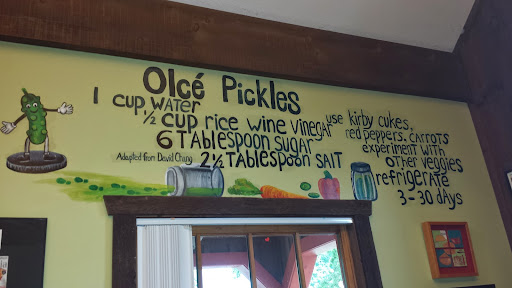 Olcé Pickles
1 cup water
½ cup rice wine vinegar
6 Tablespoon sugar
Adapted from David Chang
2½ Tablespoon salt
use kirby cukes,
red peppers, carrots
experiment with
other veggies
refrigerate
3-30 days